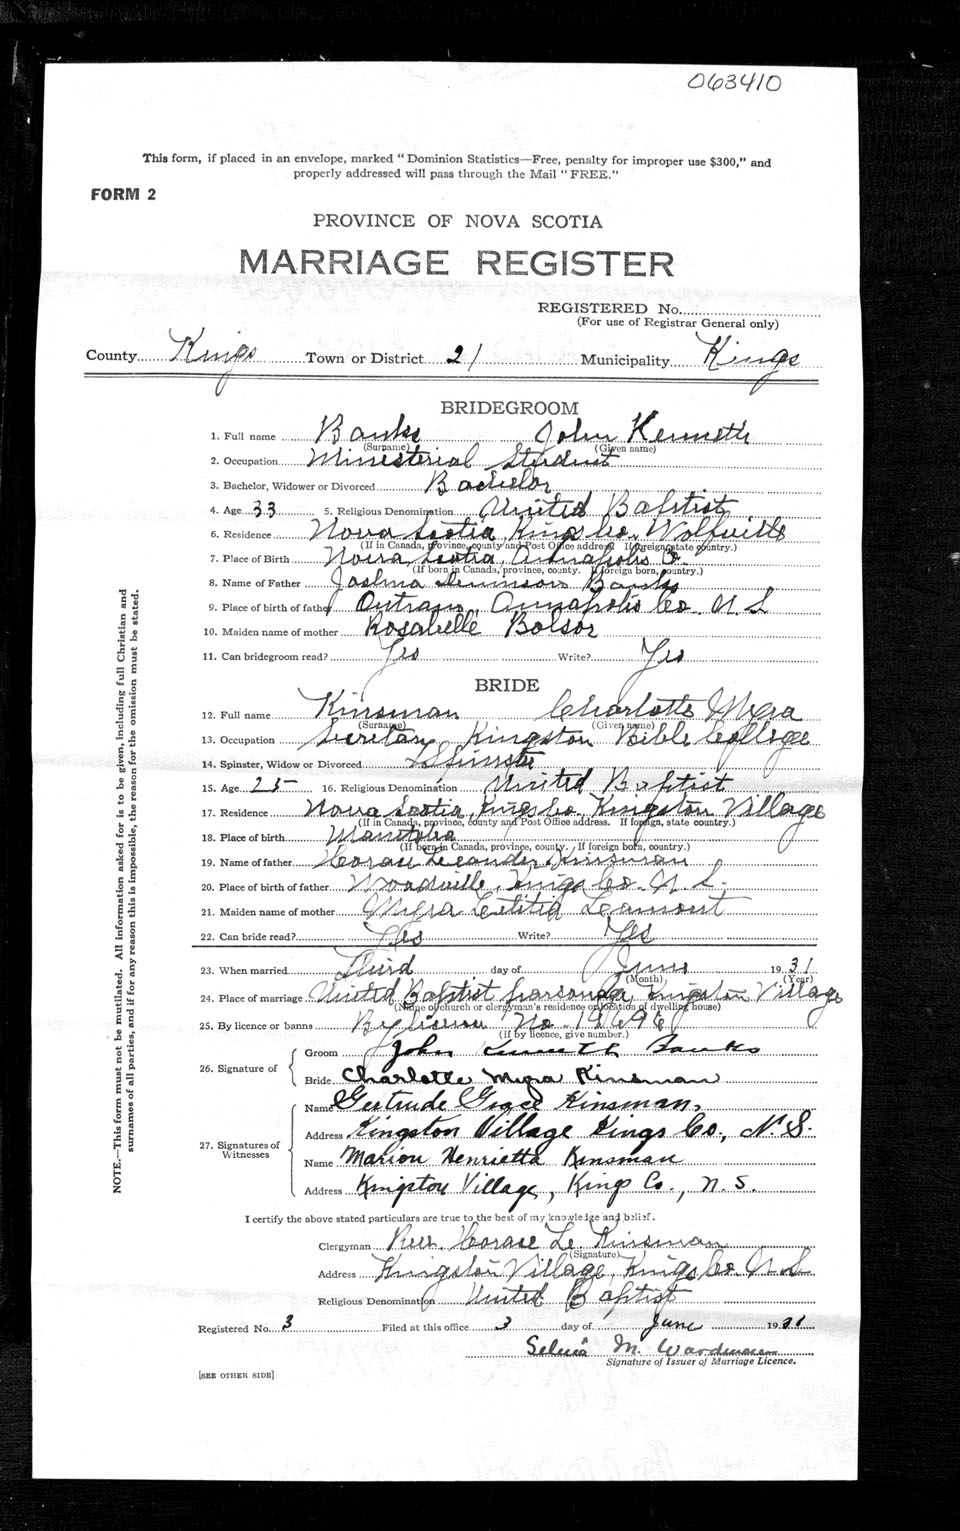 063410
This form, if placed in an envelope, marked "Dominion Statistics—Free, penalty for improper use $300," and
properly addressed will pass through the Mail "FREE."
FORM 2
PROVINCE OF NOVA SCOTIA
MARRIAGE REGISTER
REGISTERED No.
(For use of Registrar General only)
County Kings Town or District 21 Municipality Kings
BRIDEGROOM
1. Full name Banks John Kenneth
(Surname) (Given name)
2. Occupation Ministerial Student
3. Bachelor, Widower or Divorced Bachelor
4. Age 33 5. Religious Denomination United Baptist
6. Residence Nova Scotia, Kings Co. Wolfville
(If in Canada, province, county and Post Office address. If foreign, state country.)
7. Place of Birth Nova Scotia, Annapolis Co.
(If born in Canada, province, county. If foreign born, country.)
8. Name of Father Joshua Banks
9. Place of birth of father Outram, Annapolis Co. N.S
10. Maiden name of mother Rosabelle Bolsor
11. Can bridegroom read? Yes Write? Yes
BRIDE
12. Full name Kinsman Charlotte Myra
(Surname) (Given name)
13. Occupation Secretary Kingston Bible College
14. Spinster, Widow or Divorced Spinster
15. Age 25 16. Religious Denomination United Baptist
17. Residence Nova Scotia, Kings Co. Kingston Village
(If in Canada, province, county and Post Office address. If foreign, state country.)
18. Place of birth Manitoba
(If born in Canada, province, county. If foreign born, country.)
19. Name of father Horace Leander Kinsman
20. Place of birth of father Woodville, Kings Co. N.S.
21. Maiden name of mother Myra Letitia Leamont
22. Can bride read? Yes Write? Yes
23. When married Third day of June 1931
(Month) (Year)
24. Place of marriage United Baptist Parsonage, Kingston Village
(Name of church or clergyman's residence or location of dwelling house)
25. By licence or banns By licence No.
(If by licence, give number.)
26. Signature of
Groom John Kenneth Banks
Bride Charlotte Myra Kinsman
27. Signatures of Witnesses
Name Gertrude Grace Kinsman,
Address Kingston Village Kings Co., N.S.
Name Marion Henrietta Kinsman
Address Kingston Village, Kings Co., N.S.
I certify the above stated particulars are true to the best of my knowledge and belief.
Clergyman Rev. Horace L. Kinsman
(Signature)
Address Kingston Village, Kings Co. N.S.
Religious Denomination United Baptist
Registered No. 3 Filed at this office 3 day of June 1931
M.
Signature of Issuer of Marriage Licence.
[SEE OTHER SIDE]
NOTE.—This form must not be mutilated. All information asked for is to be given, including full Christian and
surnames of all parties, and if for any reason this is impossible, the reason for the omission must be stated.